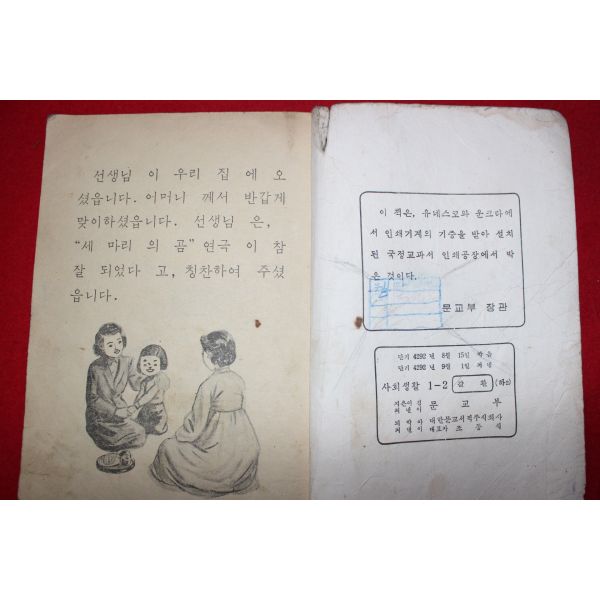 선생님 이 우리 집 에 오
셨읍니다. 어머니 께서 반갑게
맞이하셨읍니다. 선생님 은,
“세 마리 의 곰” 연극 이 참
잘 되었다 고, 칭찬하여 주셨
읍니다.
이 책은, 유네스코와 운크라에
서 인쇄기계의 기증을 받아 설치
된 국정교과서 인쇄공장에서 박
은 것이다.
문교부 장관
단기 4292년 8월 15일 박음
단기 4292년 9월 1일 펴냄
사회생활 1-2
문 교 부
대한문교서적주식회사